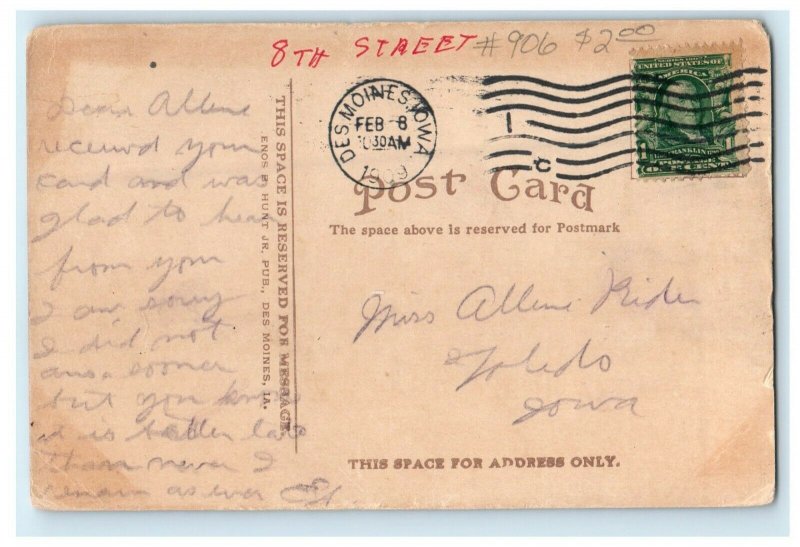 8TH STREET #906 $2.00
DES MOINES, IOWA
FEB 8
10 30 AM
1909
1
C
SERIES 1902
UNITED STATES OF
AMERICA
FRANKLIN
Post Card
The space above is reserved for Postmark
THIS SPACE IS RESERVED FOR MESSAGE.
ENOS B. HUNT JR. PUB., DES MOINES, IA.
Dear Allene
received your
card and was
glad to hear
from you
I am sorry
I did not
ans. sooner
but you know
it is better late
than never I
remain as ever
Miss Allene Rider
Toledo
Iowa
THIS SPACE FOR ADDRESS ONLY.